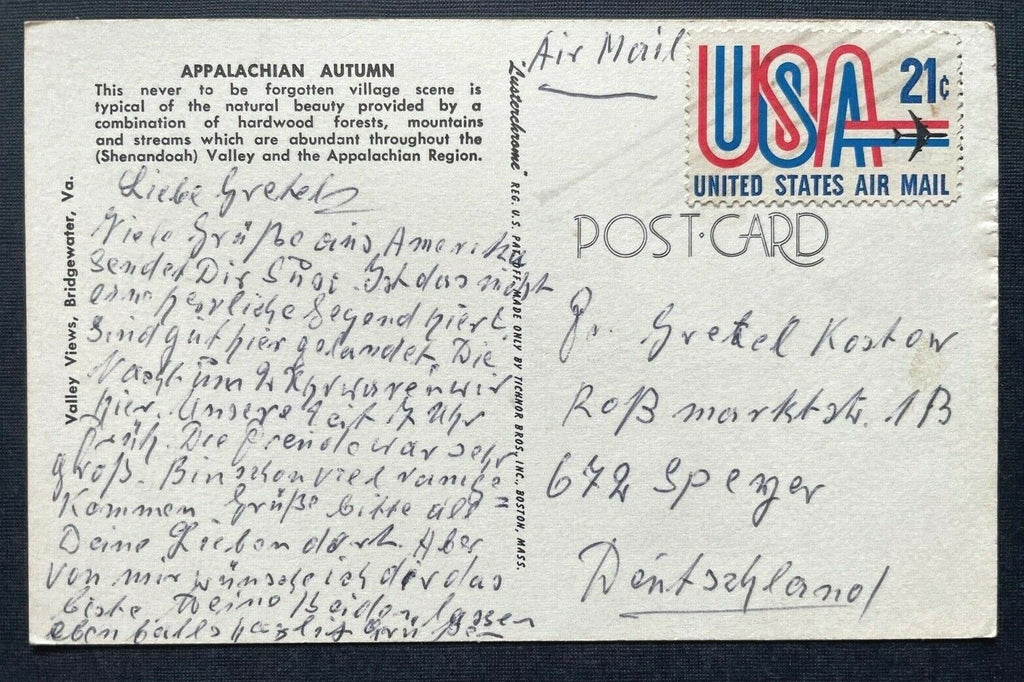 APPALACHIAN AUTUMN
This never to be forgotten village scene is
typical of the natural beauty provided by a
combination of hardwood forests, mountains
and streams which are abundant throughout the
(Shenandoah) Valley and the Appalachian Region.
Valley Views, Bridgewater, Va.
Liebe Gretel
Viele Grüße aus Amerika
sendet Dir Ist das nicht
eine herrliche Gegend hier?
Sind gut hier gelandet. Die
Nacht um 2 Uhr waren wir
hier. Unsere Zeit 7 Uhr
früh. Die Freude war sehr
groß. Bin schon viel rumge=
kommen Grüße bitte all
Deine Lieben dort. Aber
von mir wünsche ich dir das
beste Meine Beiden lassen
ebenfalls herzlich Grüßen
"Lusterchrome" REG. U.S. PAT. OFF. MADE ONLY BY TICHNOR BROS., INC., BOSTON, MASS.
Air Mail
USA 21c
UNITED STATES AIR MAIL
POST·CARD
Fr. Gretel Kostow
Roßmarktstr. 1B
672 Speyer
Deutschland